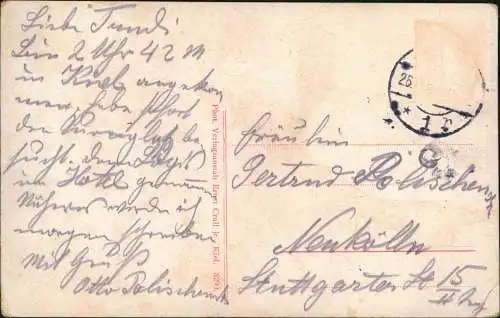 Liebe Trudi
Bin 2 Uhr 42 M
in Kiel angekom
men, habe schon
den be
sucht. dem Logis
im Hotel genommen
Näheres werde ich
morgen schreiben
Mit Gruß
Otto Polischenk
Phot. Verlagsanstalt Ernst Crull jr., Kiel.
25
* 1 r
Fräulein
Gertrud Polischenk
Neukölln
Stuttgarter St 15
II